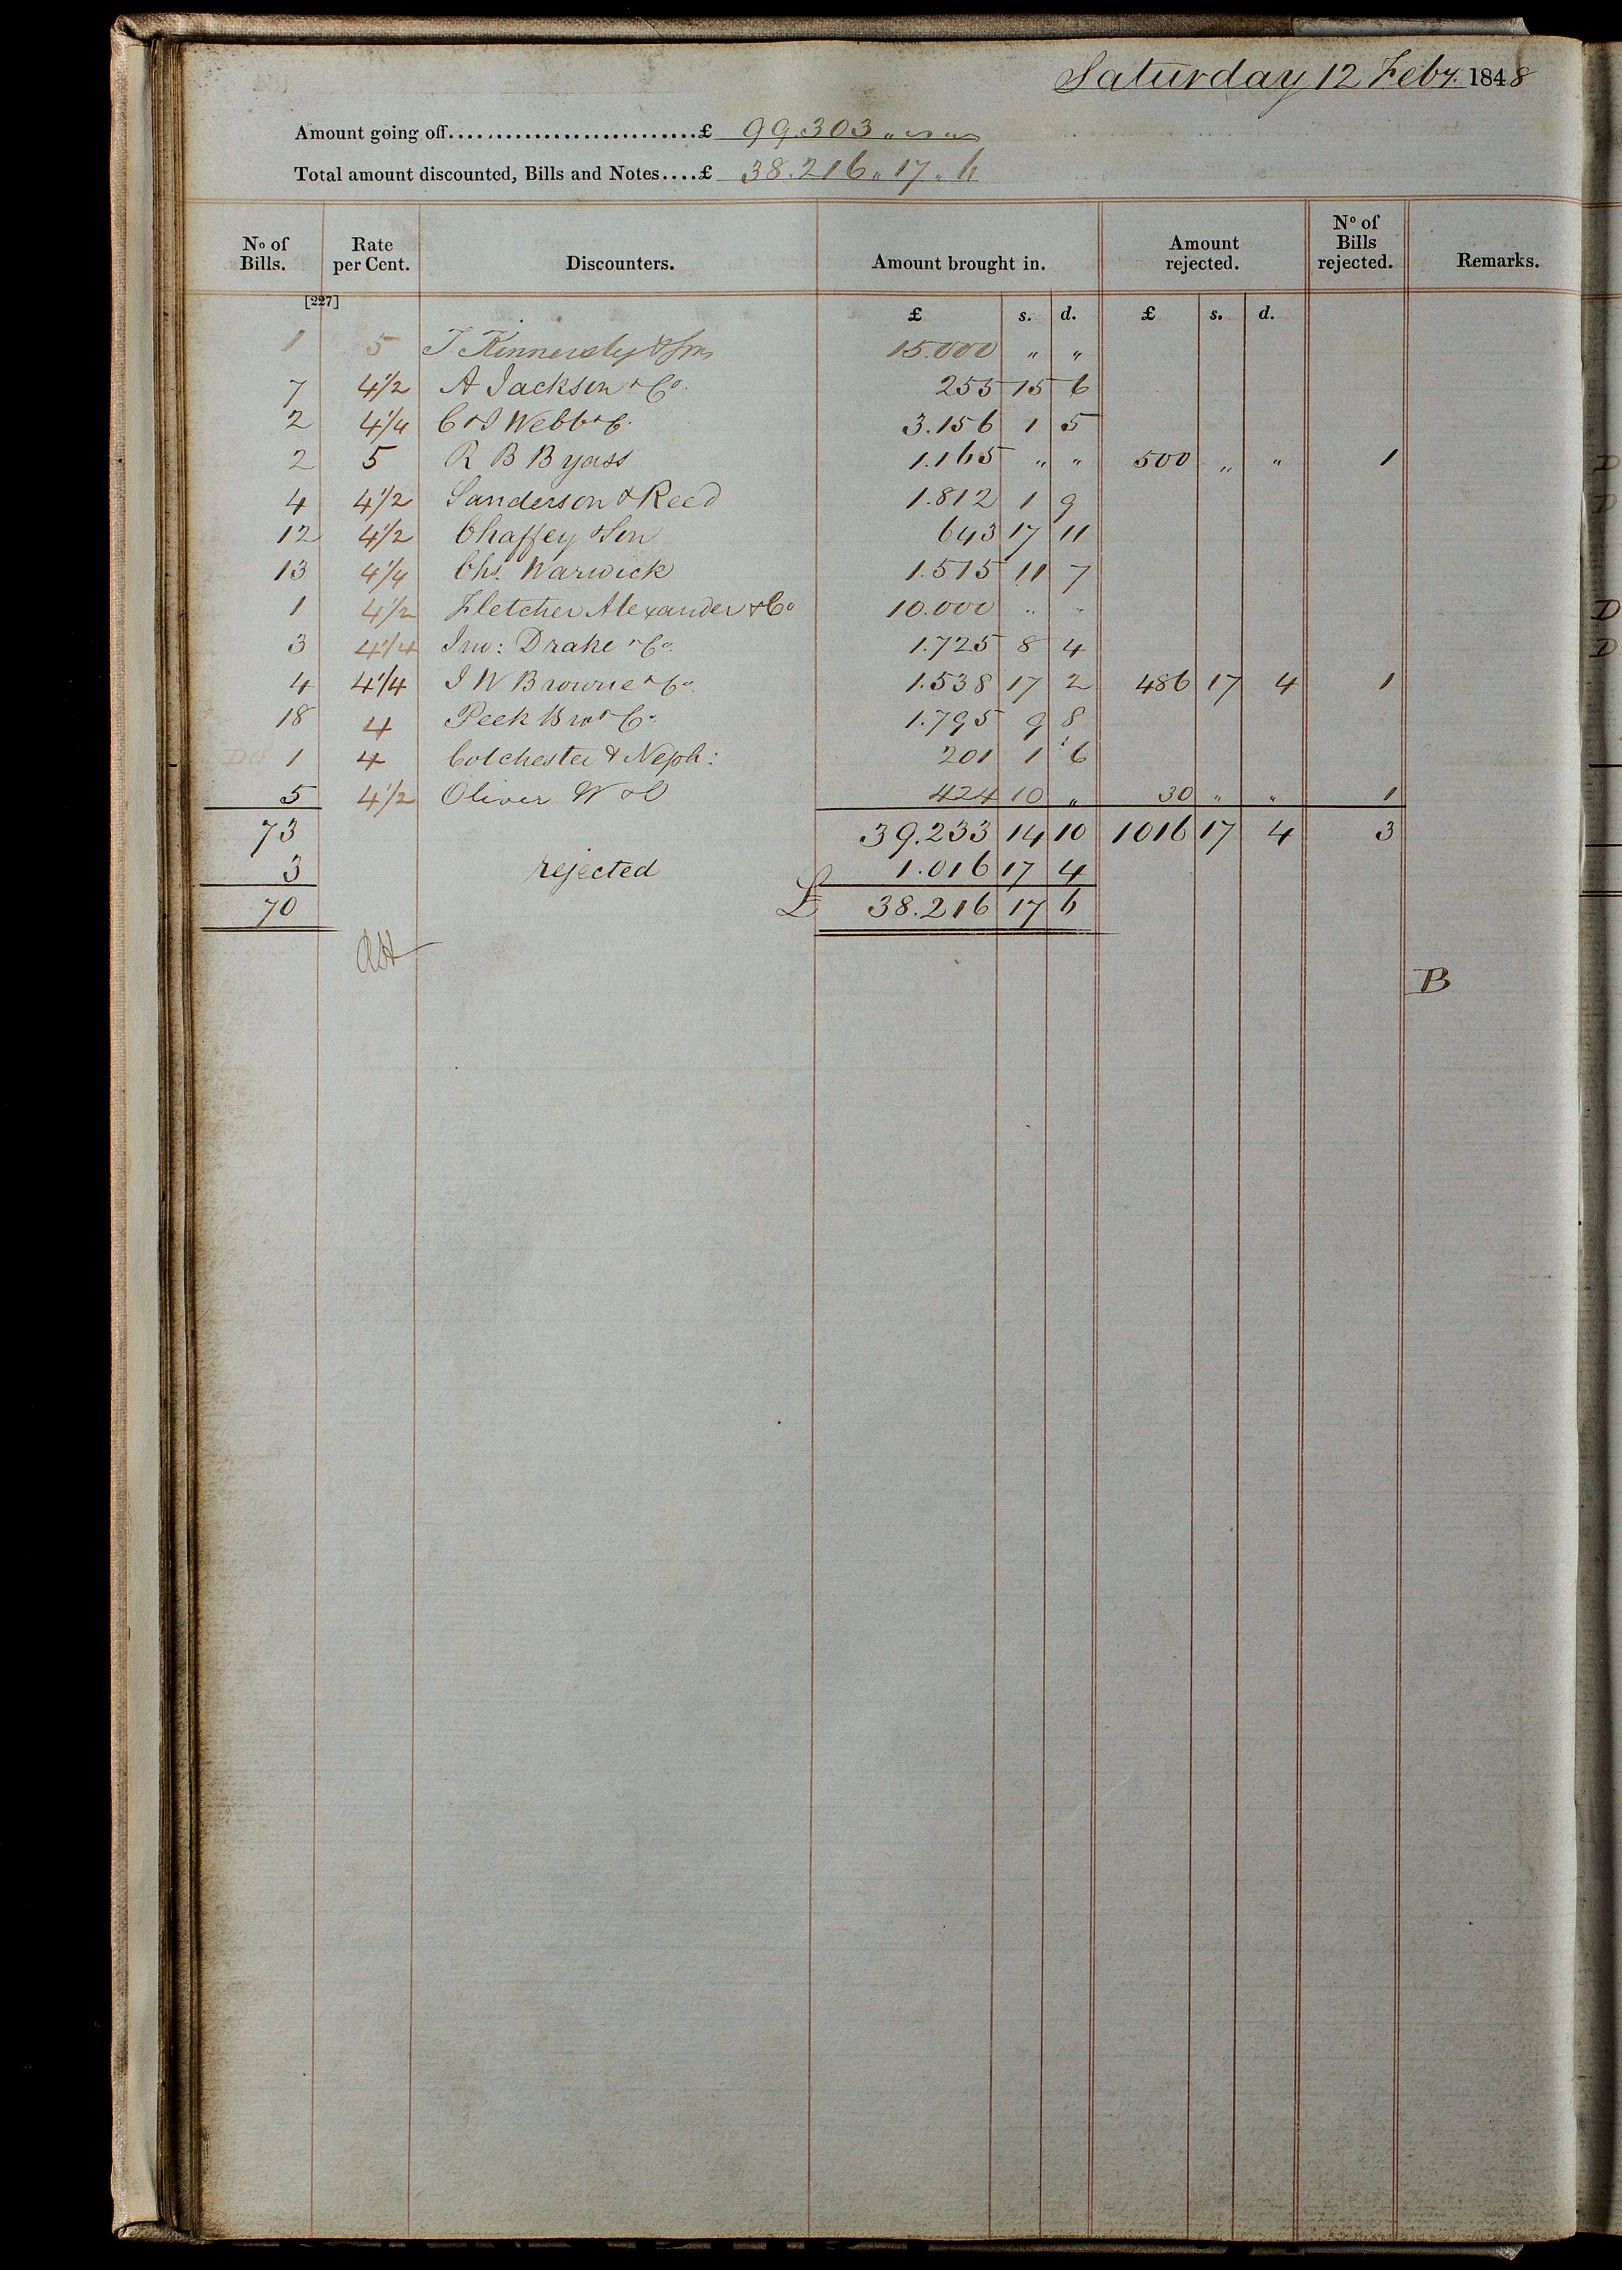 Saturday 12 Feby. 1848
Amount going off...........................£ 99.303 " " "
Total amount discounted, Bills and Notes....£ 38.216 " 17 " 6
No of Bills. Rate per Cent. Discounters. Amount brought in. Amount rejected. No of Bills rejected. Remarks.
[227]
£ s. d. £ s. d.
1 5 T. Kinnersley & Sons 15.000 " "
7 4½ A Jackson & Co. 255 15 6
2 4¼ C & J Webb & C. 3.156 1 5
2 5 R B Byass 1.165 " " 500 " " 1
4 4½ Sanderson & Reed 1.812 1 9
12 4½ Chaffey & Son 643 17 11
13 4¼ Chs. Warwick 1.515 11 7
1 4½ Fletcher Alexander & Co 10.000 " "
3 4¼ Jno: Drake & Co. 1.725 8 4
4 4¼ J W Browne & Co. 1.538 17 2 486 17 4 1
18 4 Peek Bro & Co. 1.795 9 8
1 4 Colchester & Neph: 201 1 6
5 4½ Oliver W & O 424 10 " 30 " " 1
73 39.233 14 10 1016 17 4 3
3 rejected 1.016 17 4
70 £ 38.216 17 6
B